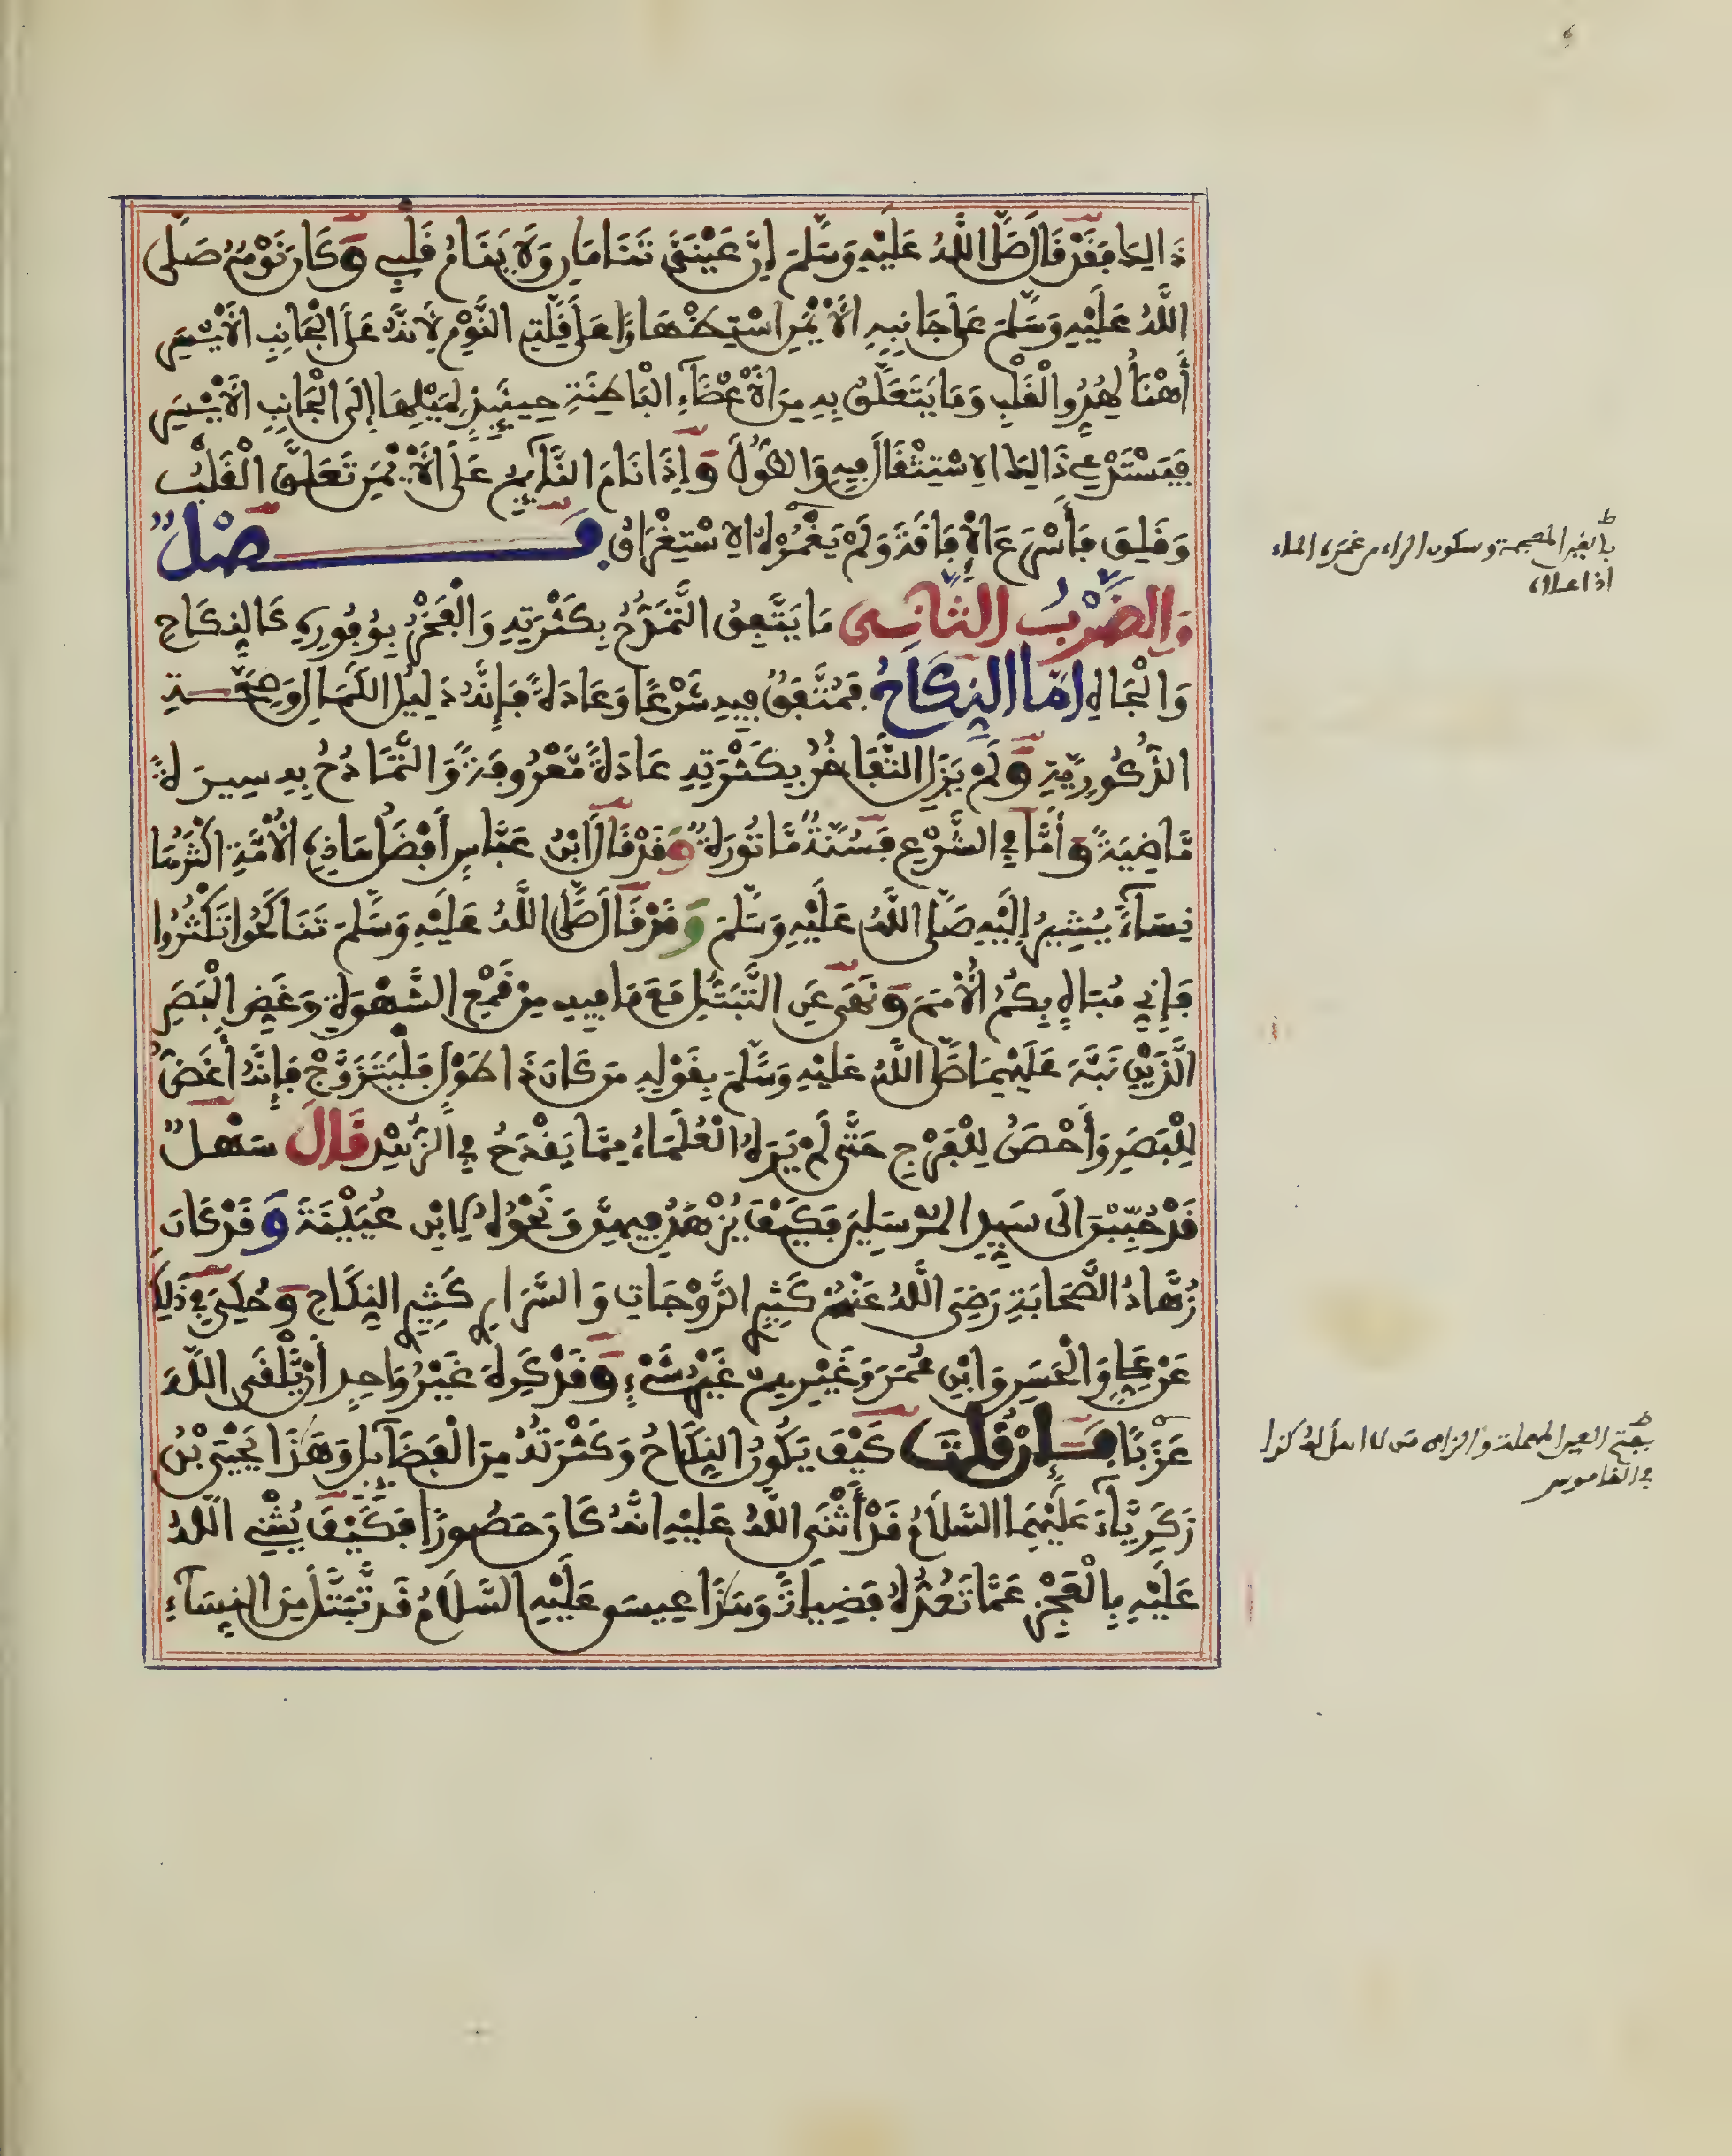 ذَالِكَ فَقَدْ قَالَ صَلَّى اللَّهُ عَلَيْهِ وَسَلَّمَ إِنَّ عَيْنَيَّ تَنَامَانِ وَلَا يَنَامُ قَلْبِي وَكَانَ نَوْمُهُ صَلَّى
اللَّهُ عَلَيْهِ وَسَلَّمَ عَلَى جَانِبِهِ الْأَيْمَنِ اسْتِظْهَارًا عَلَى قِلَّةِ النَّوْمِ لِأَنَّهُ عَلَى الْجَانِبِ الْأَيْسَرِ
أَهْنَأُ لِهُدُوِّ الْقَلْبِ وَمَا يَتَعَلَّقُ بِهِ مِنَ الْأَعْضَاءِ الْبَاطِنَةِ حِينَئِذٍ لِمَيْلِهَا إِلَى الْجَانِبِ الْأَيْسَرِ
فَيَسْتَدْعِي ذَالِكَ الِاسْتِثْقَالَ فِيهِ وَالطُّولَ وَإِذَا نَامَ النَّائِمُ عَلَى الْأَيْمَنِ تَعَلَّقَ الْقَلْبُ
وَقَلِقَ فَأَسْرَعَ الْإِفَاقَةَ وَلَمْ يَغْمُرْهُ الِاسْتِغْرَاقُ فَصْلٌ
وَالضَّرْبُ الثَّانِي مَا يَتَّفِقُ التَّمَدُّحُ بِكَثْرَتِهِ وَالْفَخْرُ بِوُفُورِهِ كَالنِّكَاحِ
وَالْجَاهِ أَمَّا النِّكَاحُ فَمُتَّفَقٌ فِيهِ شَرْعًا وَعَادَةً فَإِنَّهُ دَلِيلُ الْكَمَالِ وَصِحَّةِ
الذُّكُورِيَّةِ وَلَمْ يَزَلِ التَّفَاخُرُ بِكَثْرَتِهِ عَادَةً مَّعْرُوفَةً وَالتَّمَادُحُ بِهِ سِيرَةً
مَّاضِيَةً وَأَمَّا فِي الشَّرْعِ فَسُنَّةٌ مَّاثُورَةٌ وَقَدْ قَالَ ابْنُ عَبَّاسٍ أَفْضَلُ هَاذِهِ الْأُمَّةِ أَكْثَرُهَا
نِسَاءً يُشِيرُ إِلَيْهِ صَلَّى اللَّهُ عَلَيْهِ وَسَلَّمَ وَقَدْ قَالَ صَلَّى اللَّهُ عَلَيْهِ وَسَلَّمَ تَنَاكَحُوا تَكْثُرُوا
فَإِنِّي مُبَاهٍ بِكُمُ الْأُمَمَ وَنَهَى عَنِ التَّبَتُّلِ مَعَ مَا فِيهِ مِنْ قَمْعِ الشَّهْوَةِ وَغَضِّ الْبَصَرِ
الَّذَيْنِ نَبَّهَ عَلَيْهِمَا صَلَّى اللَّهُ عَلَيْهِ وَسَلَّمَ بِقَوْلِهِ مَنْ كَانَ ذَا طَوْلٍ فَلْيَتَزَوَّجْ فَإِنَّهُ أَغَضُّ
لِلْبَصَرِ وَأَحْصَنُ لِلْفَرْجِ حَتَّى لَمْ يَرَهُ الْعُلَمَاءُ مِمَّا يَقْدَحُ فِي الزُّهْدِ قَالَ سَهْلٌ
قَدْ حُبِّبْنَ إِلَى سَيِّدِ الْمُرْسَلِينَ فَكَيْفَ يُزْهَدُ فِيهِنَّ وَنَحْوُهُ لِابْنِ عُيَيْنَةَ وَقَدْ كَانَ
زُهَّادُ الصَّحَابَةِ رَضِيَ اللَّهُ عَنْهُمْ كَثِيرِ الزَّوْجَاتِ وَالسَّرَارِي كَثِيرِ النِّكَاحِ وَحُكِيَ فِي ذَلِكَ
عَنْ عَلِيٍّ وَالْحَسَنِ وَابْنِ عُمَرَ وَغَيْرِهِمْ غَيْرُ شَيْءٍ وَقَدْ كَرِهَ غَيْرُ وَاحِدٍ أَنْ يَّلْقَى اللَّهَ
عَزَبًا فَإِنْ قُلْتَ كَيْفَ يَكُونُ النِّكَاحُ وَكَثْرَتُهُ مِنَ الْفَضَائِلِ وَهَذَا يَحْيَى بْنُ
زَكَرِيَّاءَ عَلَيْهِمَا السَّلَامُ قَدْ أَثْنَى اللَّهُ عَلَيْهِ أَنَّهُ كَانَ حَصُورًا فَكَيْفَ يُثْنِي اللَّهُ
عَلَيْهِ بِالْعَجْزِ عَمَّا تَعُدُّهُ فَضِيلَةً وَهَذَا عِيسَى عَلَيْهِ السَّلَامُ قَدْ تَبَتَّلَ مِنَ النِّسَاءِ
بالغين المعجمة وسكون الراء من غمره الماء
اذا علاه
بفتح العين المهملة والزاي من لا اهل له كذا
في القاموس